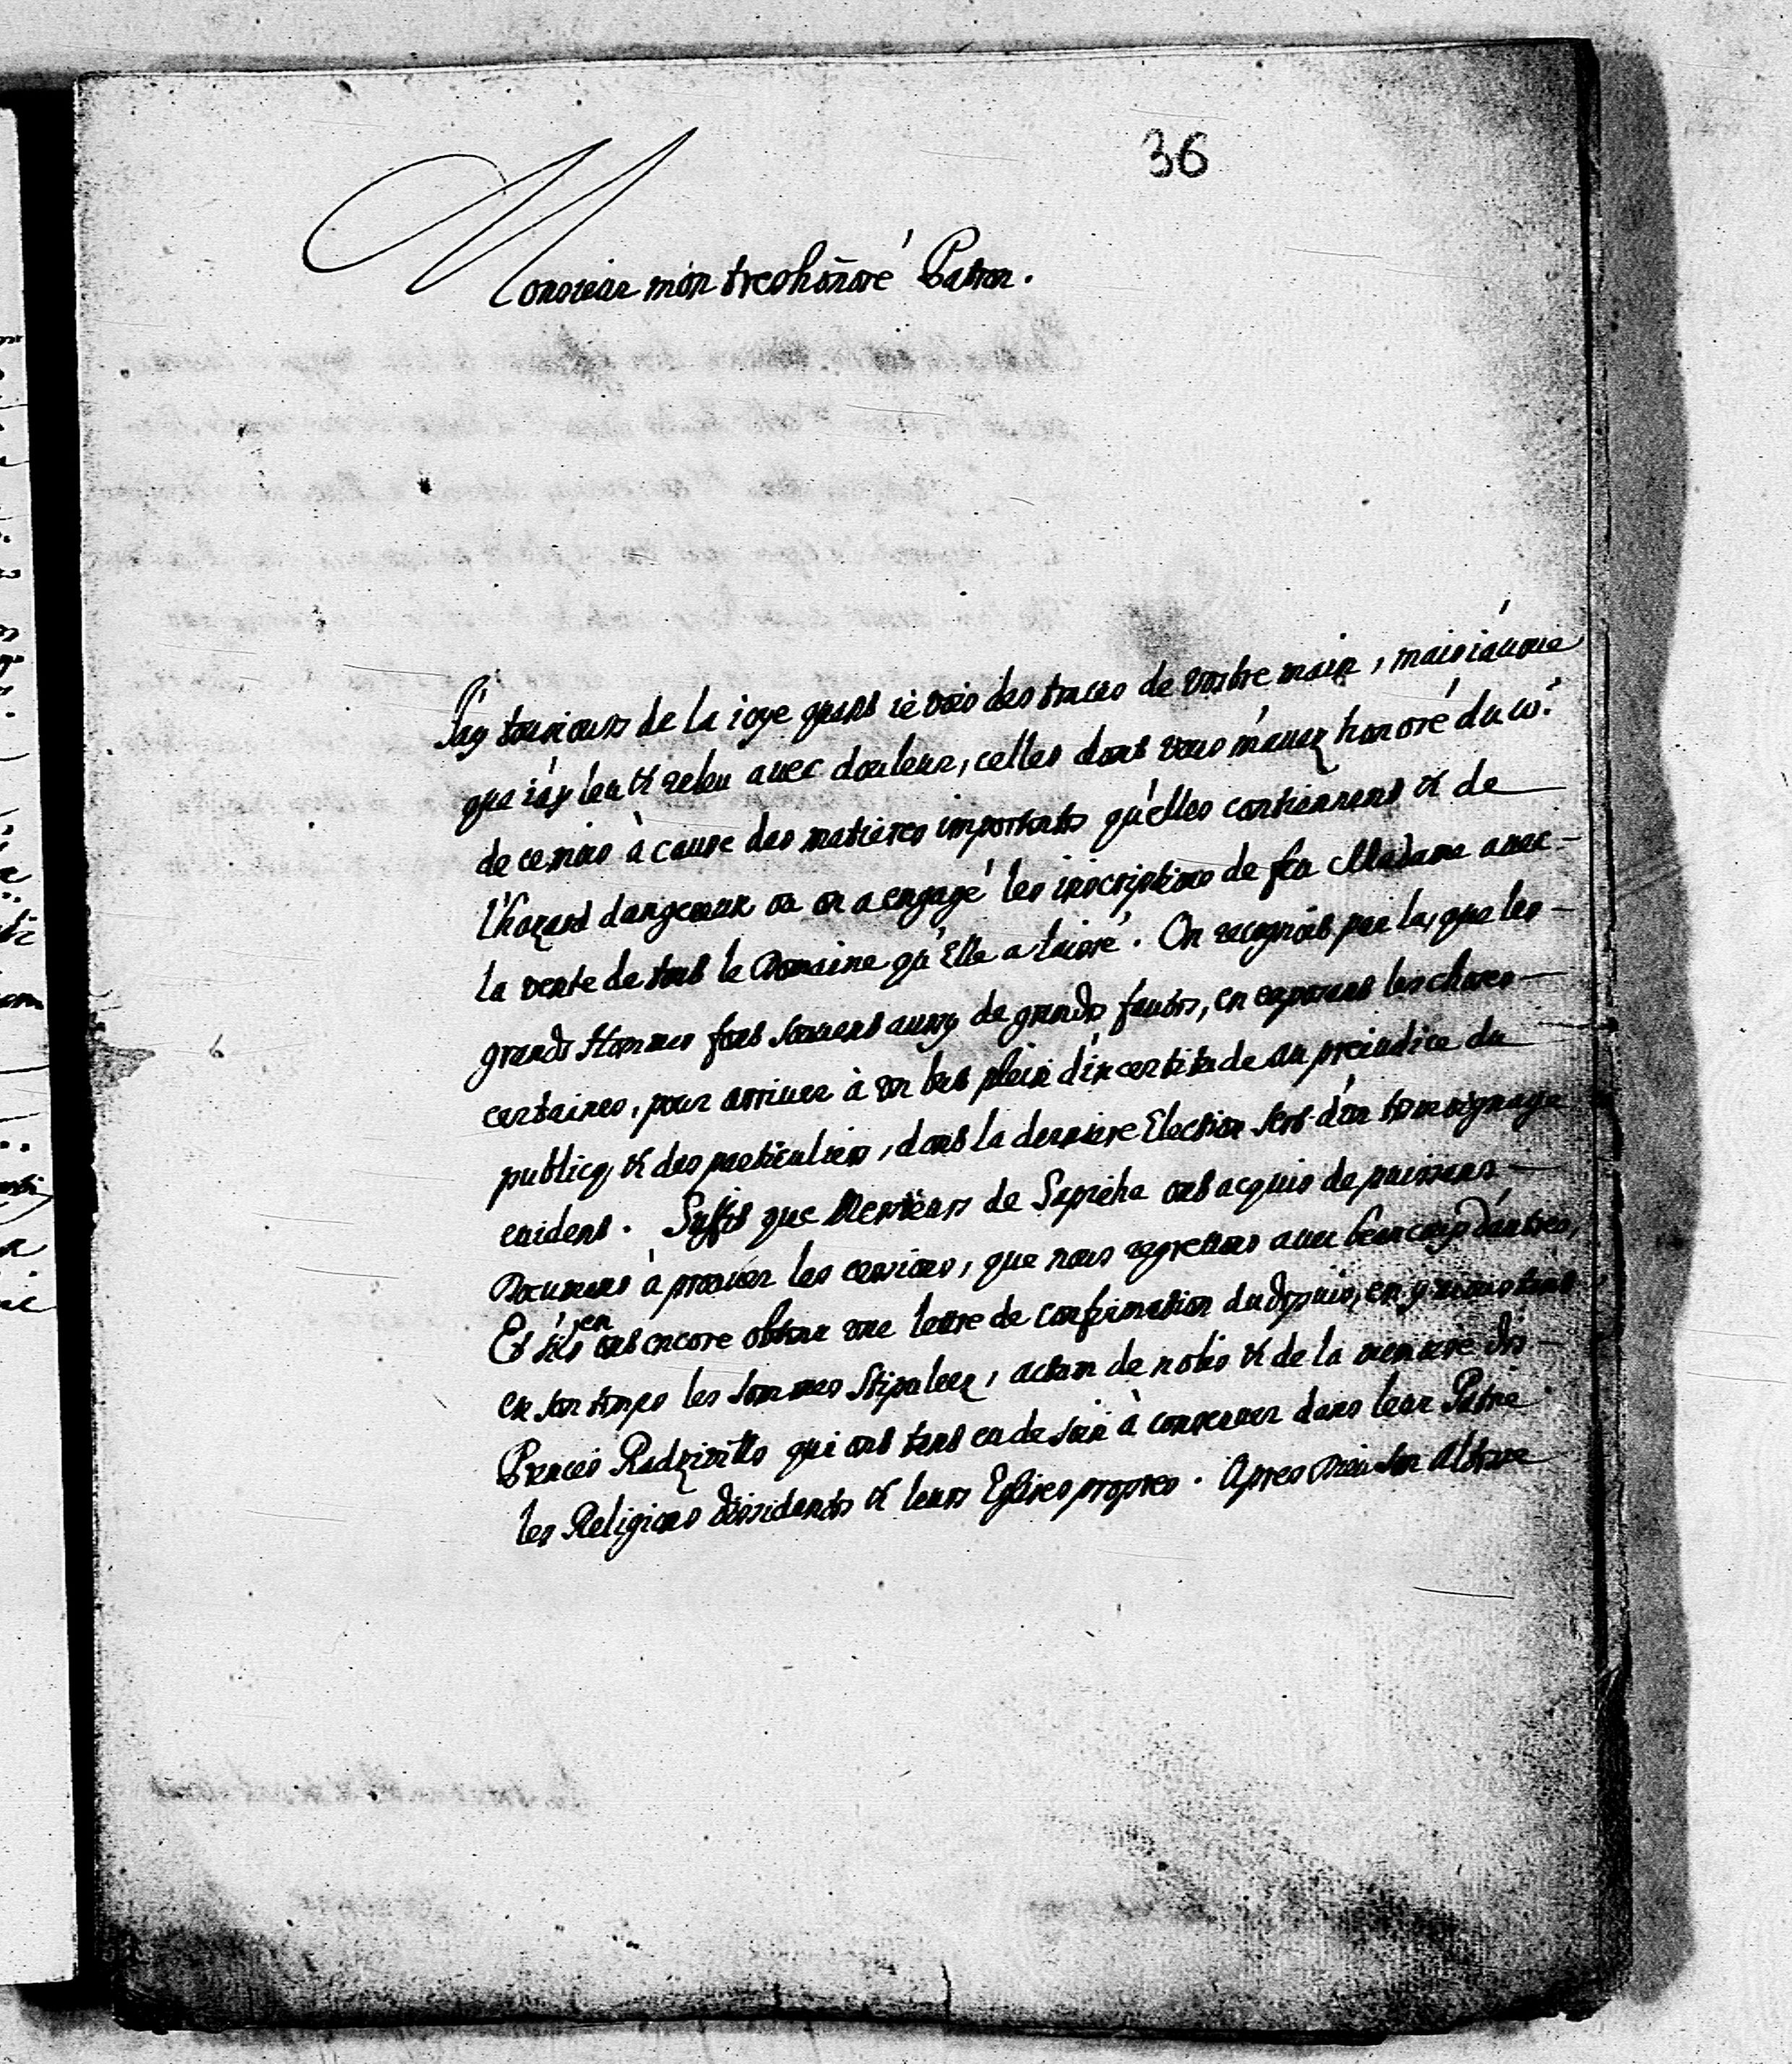 36
Monsieur mon treshonnoré Patron.
J'ay tousiours de la ioye quand ie vois des traces de vostre main, mais i'auoue
que i'ay leu & releu auec douleur, celles dont vous m'auez honoré du 10.
de ce mois à cause des matieres importants qu'elles contiennent & de
l'hazard dangereux ou on a engagé les inscriptions de feu Madame auec
la vente de tout le Domaine qu'Elle a laissé. On recognoit par la, que les
grands Hommes font souuent aussy de grands fautes, en exposant les choses
certaines, pour arriuer à un but plein d'incertitude au preiudice du
publicq & des particuliers, dont la derniere Election sert d'un temoignage
euident. Suffit que Messieurs de Sapieha ont acquis de puissans
Documens à prouuer les services, que nous regrettons auec beaucoup d'autres,
Et s'ils en ont encore obtenu une lettre de confirmation du depuis, en y
en son temps les sommes stipuleez, actum de nobis & de la memoire des
Princes Radziwills qui ont tant eu de soin à conseruer dans leur Patrie
les Religions dissidents & leurs Eglises propres. Apres Dieu Son Altesse